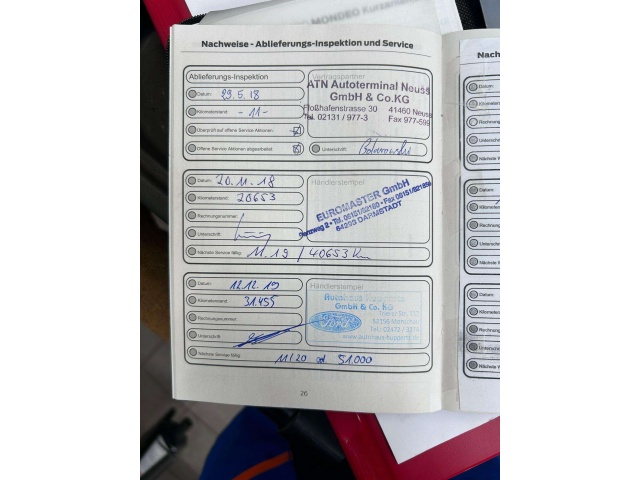 MONDEO
Nachweise - Ablieferungs-Inspektion und Service
Ablieferungs-Inspektion
Datum: 29.5.18
Kilometerstand: - 11 -
Überprüft auf offene Service Aktionen
Offene Service Aktionen abgearbeitet
Vertragspartner
ATN Autoterminal Neuss
GmbH & Co.KG
Floßhafenstrasse 30 41460 Neuss
Tel. 02131 / 977-3 Fax 977-599
Unterschrift:
Datum: 20.11.18
Kilometerstand: 20653
Rechnungsnummer:
Unterschrift:
Nächste Service fällig: 11.19 / 40653 Km
Händlerstempel
EUROMASTER GmbH
64293 DARMSTADT
Datum: 12.12.19
Kilometerstand: 31.455
Rechnungsnummer:
Unterschrift:
Nächste Service fällig: 11/20 od 51.000
Händlerstempel
GmbH & Co. KG
Ford
52156 Monschau
26
Nach
Datum:
Kilometerstand
Rechnung
Unterschri
Nächste W
Datum:
Kilometer
Rechnung
Unterschr
Nächste W
Datum:
Kilometer
Rechnung
Unterschri
Nächste W